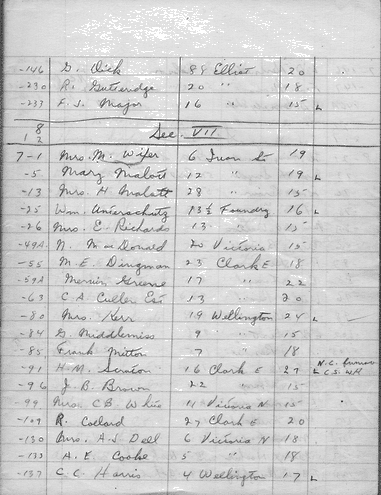 -146 D. Dick 89 Elliot 20
-230 R. Gutteridge 20 " 18
-233 F. J. Major 16 " 15 L
18/2 Sec. VII
7-1 Mrs. M. Wifer 6 Iron St 19
-5 Mary Malott 12 " 19 L
-13 Mrs. H Malott 28 " 15
-25 Wm. 13½ Foundry 16 L
-26 Mrs. E. Richards 13 " 15
-49A N. McDonald 20 Victoria 15
-55 M. E. Dingman 23 Clark E 18
-59A Greene 17 " 22
-63 C A Culler Est 13 " 20
-80 Mrs. Kerr 19 Wellington 24 L
-84 G. Middlemiss 9 " 15
-85 Frank Mitton 7 " 18
-91 H. M. 16 Clark E 27 L
-96 J. B. Brown 22 " 15
-99 Mrs. C B White 11 Victoria N 15
-109 R. Collard 27 Clark E 20
-130 Mrs. A. J. Dell 6 Victoria N 18
-133 A. E. Cooke 5 " 18
-137 C. C. Harris 4 Wellington 17 L